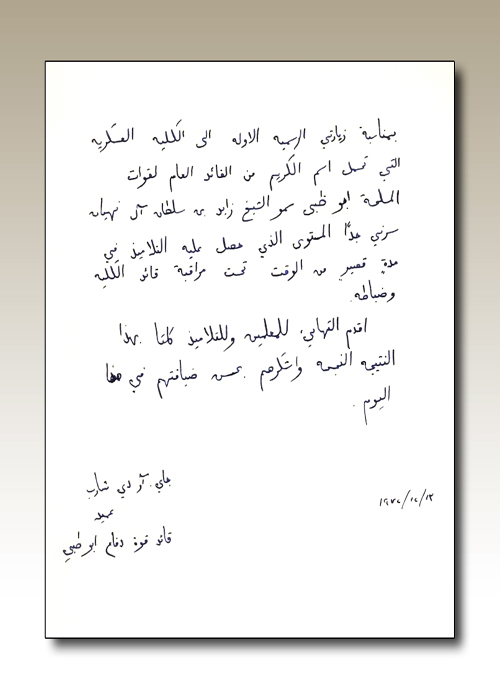 بمناسبة زيارتي الرسميه الاوله الى الكليه العسكريه
التي تحمل اسم الكريم من القائد العام لقوات
المسلحة ابو ظبي سمو الشيخ زايد بن سلطان آل نهيان
سرني جداً المستوى الذي حصل عليه التلاميذ في
مدةٍ قصيرٍ من الوقت تحت مراقبة قائد الكليه
وضباطه.
اقدم التهاني للمعلمين وللتلاميذ كلتا بهذا
النتيجه واشكرهم بحسن ضيافتهم في هذا
اليوم.
جاي. آر دي شارب
عميد
قائد قوة دفاع ابو ظبي